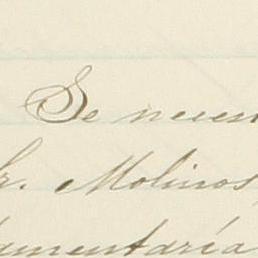 Se neces
Sr. Molinos,
amentaría